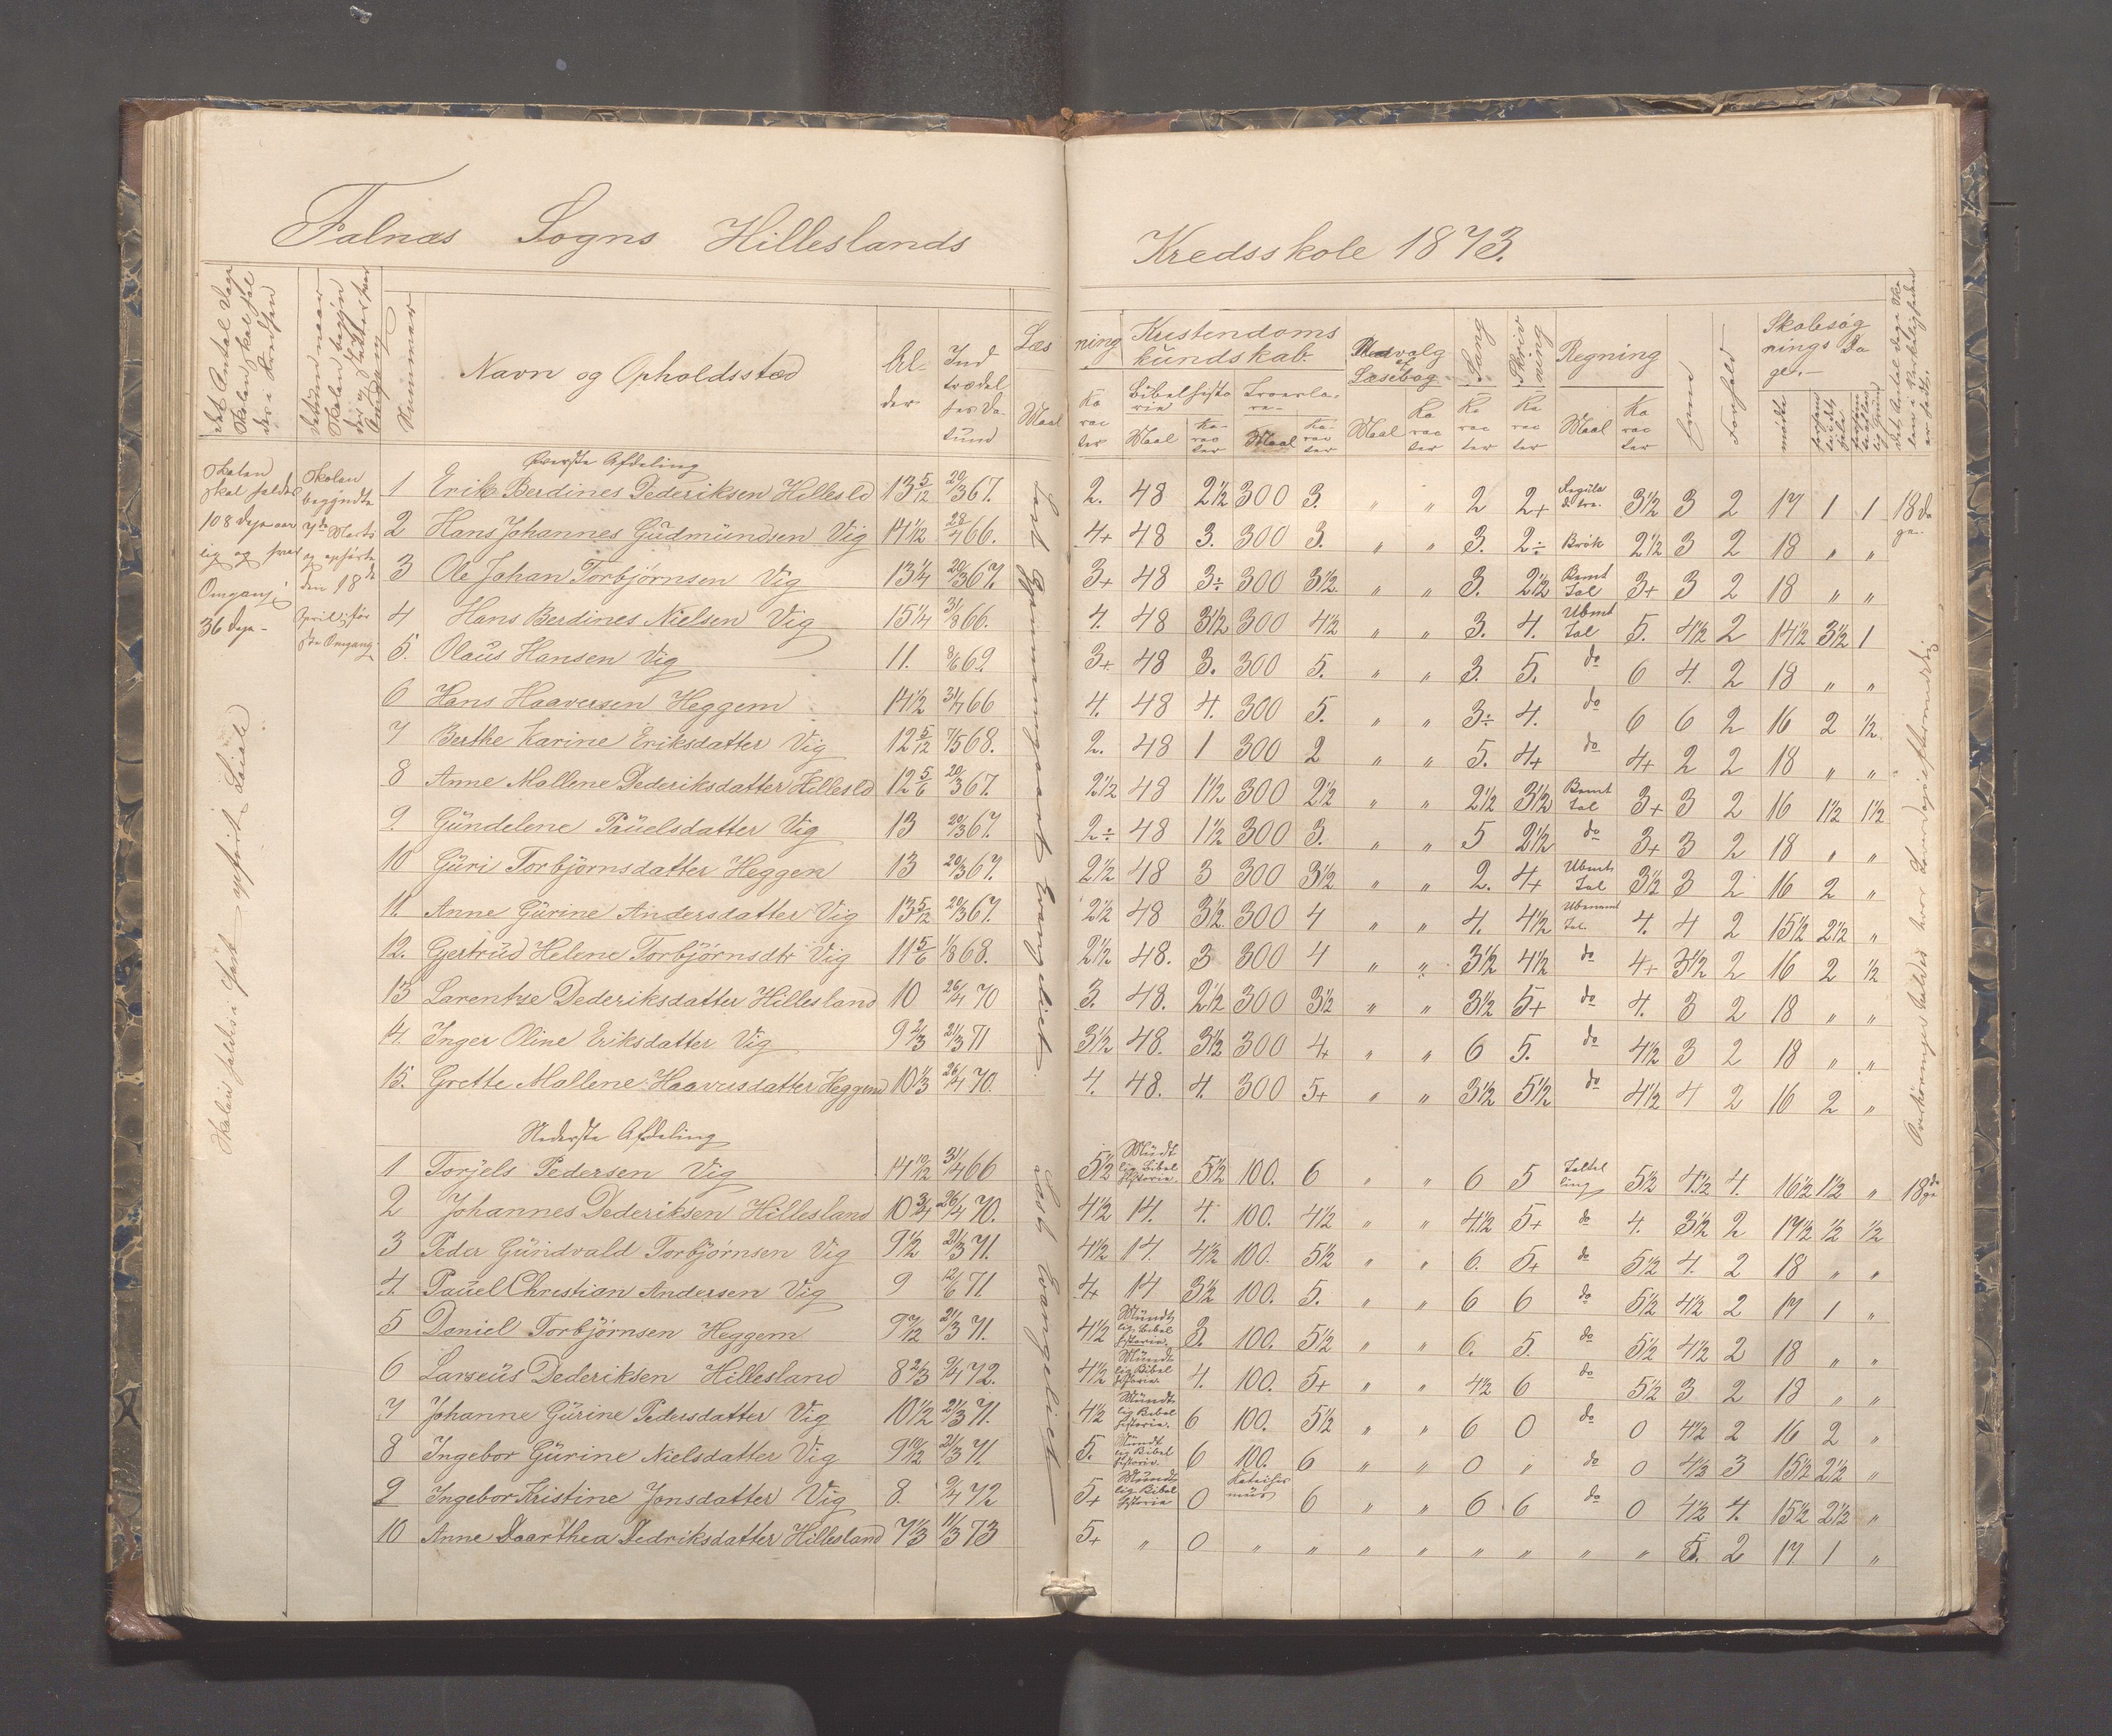 Falnæs Sogns Hilleslands Kredsskole 1873.
Det Antal Dage Skolen skal holdes i Kredsen
Datum naar Skolen begyndte og sluttes
Nummer
Navn og Opholdssted
Alder
Indtrædelses Datum
Læsning
Maal
Karacter
Kristendoms kundskab.
Bibelhistorie
Troeslære
Maal
Karacter
Maal
Karacter
Udvalg af Læsebog
Maal
Karacter
Sang
Karacter
Skrivning
Karacter
Regning
Maal
Karacter
Evne
Forhold
Skolesøgnings Dage.
mødte
Skolen skal holdes 108 Dage aarlig og hver Omgang 36 Dage
Skolen begyndte 7de Marts og ophørte den 18de April, første Omgang.
Læst Gjennemgaaet Evangeliet.
Øverste Afdeling
1 Erik Berdines Dederiksen Hillesld 13 5/12 20/3 67. 2. 48 2 1/2 300 3. " " 2 2+ Regula de tri. 3 1/2 3 2 17 1 1 18 Dage.
2 Hans Johannes Gudmundsen Vig 14 1/12 28/4 66. 4+ 48 3. 300 3. " " 3. 2÷ Brøk 2 1/2 3 2 18 " "
3 Ole Johan Torbjørnsen Vig 13 1/4 20/3 67. 3+ 48 3÷ 300 3 1/2. " " 3. 2 1/2 Bemt Tal 3+ 3 2 18 " "
4 Hans Berdines Nielsen Vig 15 1/4 31/3 66. 4. 48 3 1/2 300 4 1/2 " " 3. 4. Ubmt Tal 5. 4 1/2 2 14 1/2 3 1/2 1
5. Olaus Hansen Vig 11. 8/6 69. 3+ 48 3. 300 5. " " 3. 5. do 6 4. 2 18 " "
6 Hans Haaversen Heggem 14 1/2 31/4 66 4. 48 4. 300 5. " " 3÷ 4. do 6 6 2 16 2 1/2
7 Berthe Karine Eriksdatter Vig 12 5/12 7/5 68. 2. 48 1 300 2 " " 5. 4+ do 4+ 2 2 18 " "
8 Anne Mallene Dederiksdatter Hillesld 12 5/6 20/3 67. 2 1/2 48 1 1/2 300 2 1/2 " " 2 1/2 3 1/2 Bemt Tal 3+ 3 2 16 1 1/2 1 1/2
9. Gundelene Pauelsdatter Vig 13 20/3 67. 2÷ 48 1 1/2 300 3. " " 5 2 1/2 do 3+ 3 2 18 " "
10 Guri Torbjørnsdatter Heggen 13 20/3 67. 2 1/2 48 3 300 3 1/2 " " 2. 4+ Ubmt Tal 3 1/2 3 2 16 2 "
11. Anne Gurine Andersdatter Vig 13 5/12 20/3 67. 2 1/2 48 3 1/2 300 4 " " 4. 4 1/2 Ubenemt Tal. 4. 4 2 15 1/2 2 1/2 "
12. Gjertrud Helene Torbjørnsdtr Vig 11 5/6 1/8 68. 2 1/2 48. 3 300 4 " " 3 1/2 4 1/2 do 4+ 3 1/2 2 16 2 1/2
13 Larentze Dederiksdatter Hillesland 10 26/4 70 3. 48. 2 1/2 300 3 1/2 " " 3 1/2 5+ do 4. 3 2 18 " "
14. Inger Oline Eriksdatter Vig 9 2/3 21/3 71 3 1/2 48. 3 1/2 300 4+ " " 6 5. do 4 1/2 3 2 18 " "
15. Grette Mallene Haaversdatter Heggem 10 1/3 26/4 70. 4. 48. 4. 300 5+ " " 3 1/2 5 1/2 do 4 1/2 4 2 16 2 "
Nederste Afdeling
Læst Evangeliet
1 Torjels Pedersen Vig 14 10/12 31/4 66 5 1/2 Mundtlig Bibel historie. 5 1/2 100. 6 " " 6 5 Taltelling 5 1/2 4 1/2 4. 16 1/2 1 1/2 " 18 Dage
2 Johannes Dederiksen Hillesland 10 3/4 26/4 70. 4 1/2 14. 4. 100. 4 1/2 " " 4 1/2 5+ do 4. 3 1/2 2 17 1/2 1/2 1/2
3 Peder Gundvald Torbjørnsen Vig 9 1/2 21/3 71. 4 1/2 14. 4 1/2 100. 5 1/2 " " 6. 5+ do 5 1/2 4. 2 18 " "
4. Pauel Christian Andersen Vig 9 12/6 71 4+ 14 3 1/2 100. 5. " " 6 6 do 5 1/2 4 1/2 2 17 1 "
5 Daniel Torbjørnsen Heggem 9 7/12 21/3 71. 4 1/2 Mundtlig Bibel historie. 3. 100. 5 1/2 " " 6. 5. do 5 1/2 4 1/2 2 18 " "
6 Larseus Dederiksen Hillesland 8 2/3 9/4 72. 4 1/2 Mundtlig Bibel historie 4. 100. 5+ " " 4 1/2 6 do 5 1/2 3 2 18 " "
7 Johanne Gurine Pedersdatter Vig 10 1/2 21/3 71. 4 1/2 Mundtlig Bibel historie. 6 100. 5 1/2 " " 6 0 do 0 4 1/2 2 16 2 "
8 Ingebor Gurine Nielsdatter Vig 9 10/12 21/3 71. 5. Mundtlig Bibel historie. 6 100. 6 " " 0 " do 0 4 1/3 3 15 1/2 2 1/2 "
9 Ingebor Kristine Jonsdatter Vig 8. 9/4 72 5+ Mundtlig Bibel historie 0 Katechismus 6 " " 6 6 do 0 4 1/2 4. 15 1/2 2 1/2 "
10 Anne Doarthea Dedriksdatter Hillesland 7 1/3 11/3 73 5+ " 0 " " " " " " " " 5. 2 17 1 "